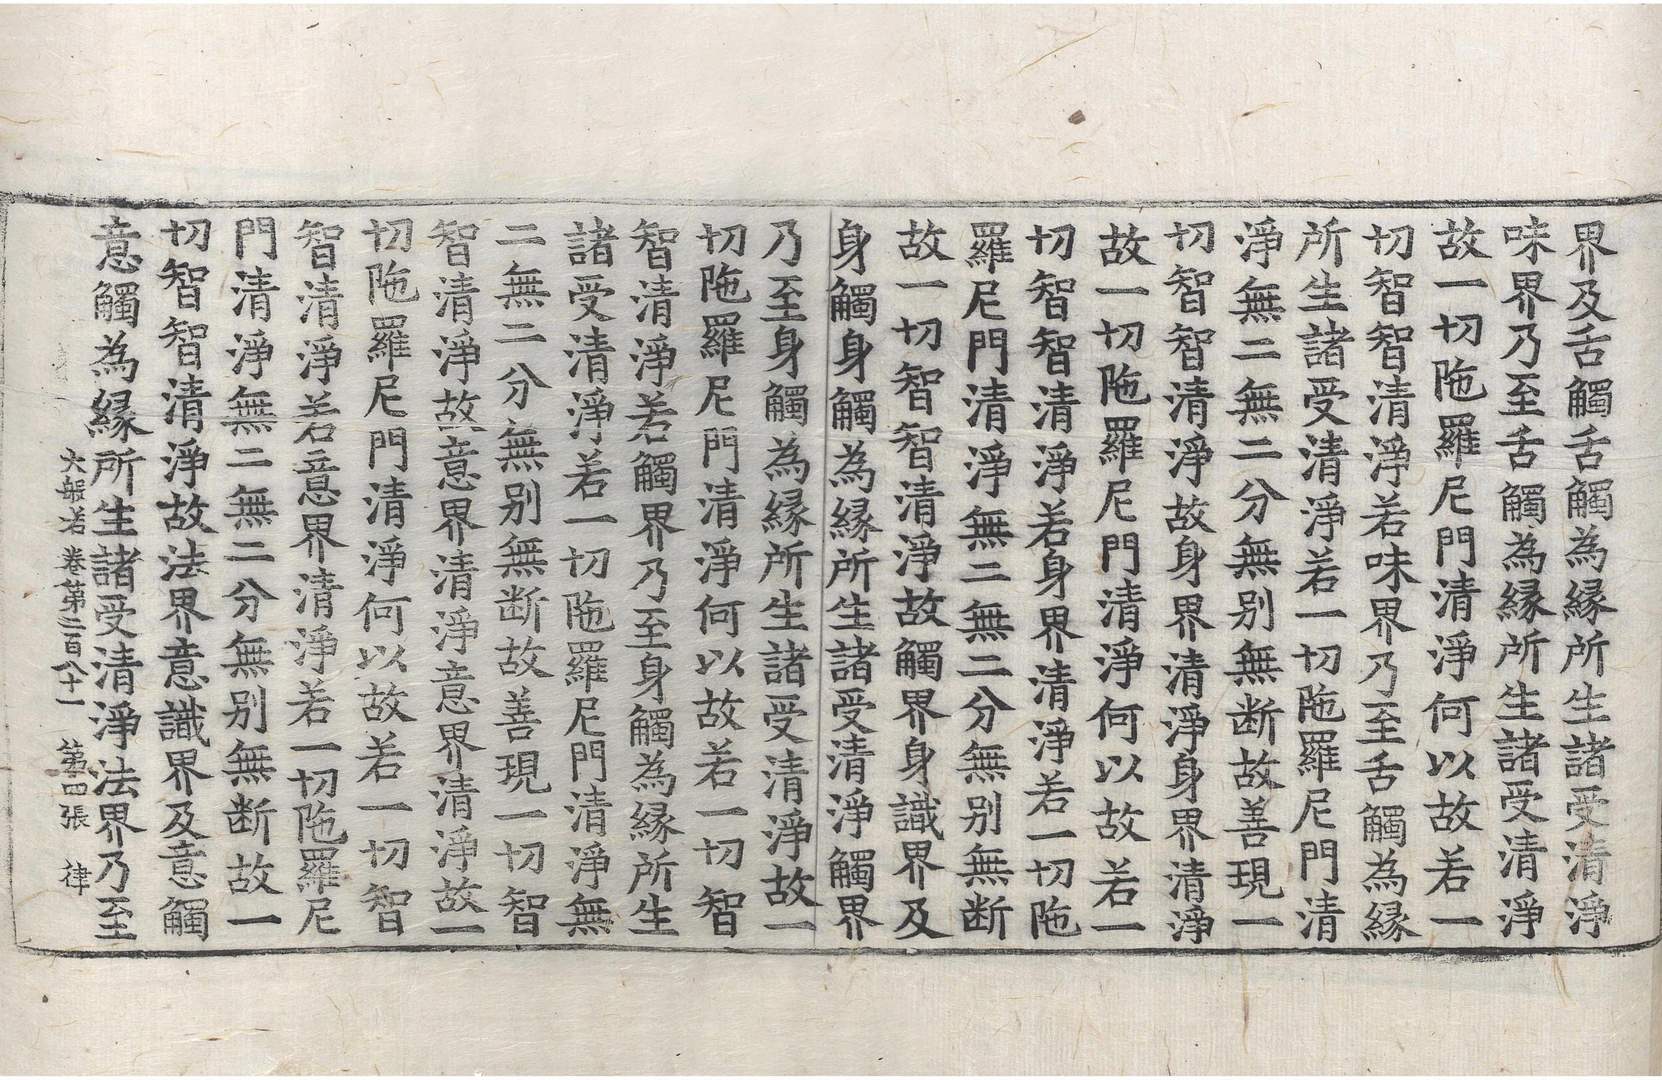 界及舌觸舌觸為縁所生諸受清淨
味界乃至舌觸為縁所生諸受清淨
故一切陁羅尼門清淨何以故若一
切智智清淨若味界乃至舌觸為縁
所生諸受清淨若一切陁羅尼門清
淨無二無二分無别無断故善現一
切智智清淨故身界清淨身界清淨
故一切陁羅尼門清淨何以故若一
切智智清淨若身界清淨若一切陁
羅尼門清淨無二無二分無别無断
故一切智智清淨故觸界身識界及
身觸身觸為縁所生諸受清淨觸界
乃至身觸為縁所生諸受清淨故一
切陁羅尼門清淨何以故若一切智
智清淨若觸界乃至身觸為縁所生
諸受清淨若一切陁羅尼門清淨無
二無二分無别無断故善現一切智
智清淨故意界清淨意界清淨故一
切陁羅尼門清淨何以故若一切智
智清淨若意界清淨若一切陁羅尼
門清淨無二無二分無别無断故一
切智智清淨故法界意識界及意觸
意觸為縁所生諸受清淨法界乃至
大般若卷第二百八十一 第四張 律